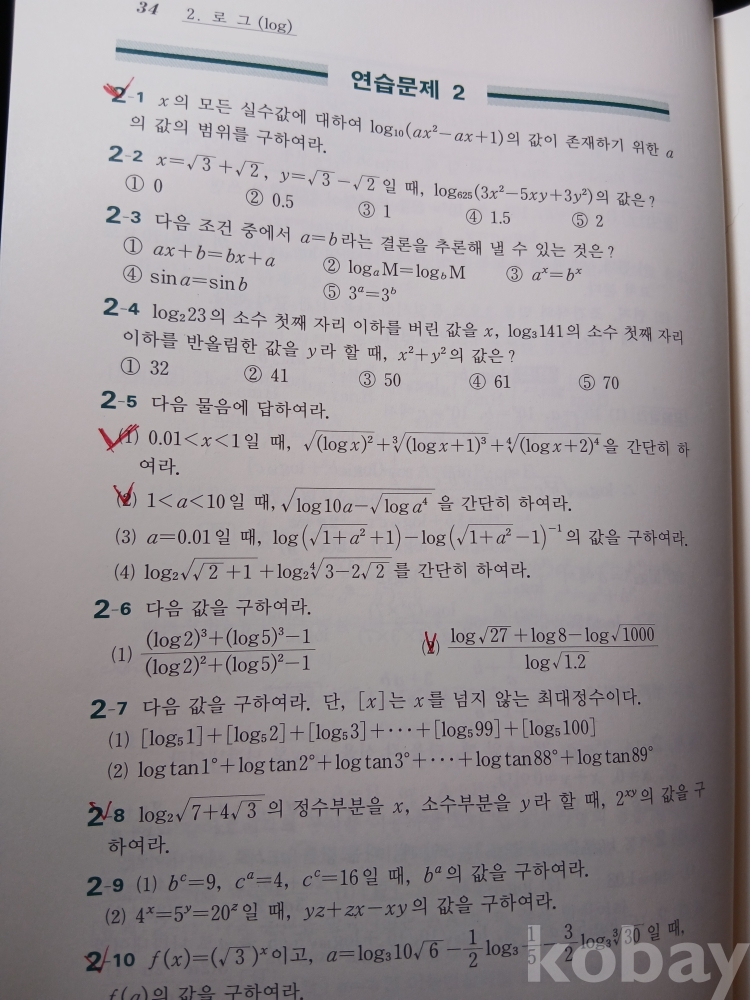 34 2. 로 그 (log)
연습문제 2
2-1 x의 모든 실수값에 대하여 log₁₀(ax²−ax+1)의 값이 존재하기 위한 a
의 값의 범위를 구하여라.
2-2 x=√3+√2, y=√3−√2일 때, log₆₂₅(3x²−5xy+3y²)의 값은?
① 0 ② 0.5 ③ 1 ④ 1.5 ⑤ 2
2-3 다음 조건 중에서 a=b라는 결론을 추론해 낼 수 있는 것은?
① ax+b=bx+a ② logₐM=log_bM ③ aˣ=bˣ
④ sin a=sin b ⑤ 3ᵃ=3ᵇ
2-4 log₂23의 소수 첫째 자리 이하를 버린 값을 x, log₃141의 소수 첫째 자리
이하를 반올림한 값을 y라 할 때, x²+y²의 값은?
① 32 ② 41 ③ 50 ④ 61 ⑤ 70
2-5 다음 물음에 답하여라.
(1) 0.01<x<1일 때, √(log x)²+∛(log x+1)³+∜(log x+2)⁴을 간단히 하
여라.
(2) 1<a<10일 때, √(log 10a−√(log a⁴)) 을 간단히 하여라.
(3) a=0.01일 때, log(√(1+a²)+1)−log(√(1+a²)−1)⁻¹의 값을 구하여라.
(4) log₂√(√2+1)+log₂∜(3−2√2)를 간단히 하여라.
2-6 다음 값을 구하여라.
(1) ((log 2)³+(log 5)³−1)/((log 2)²+(log 5)²−1) (2) (log√27+log 8−log√1000)/(log√1.2)
2-7 다음 값을 구하여라. 단, [x]는 x를 넘지 않는 최대정수이다.
(1) [log₅1]+[log₅2]+[log₅3]+⋯+[log₅99]+[log₅100]
(2) log tan 1°+log tan 2°+log tan 3°+⋯+log tan 88°+log tan 89°
2-8 log₂√(7+4√3)의 정수부분을 x, 소수부분을 y라 할 때, 2ˣʸ의 값을 구
하여라.
2-9 (1) bᶜ=9, cᵃ=4, cᶜ=16일 때, bᵃ의 값을 구하여라.
(2) 4ˣ=5ʸ=20ᶻ일 때, yz+zx−xy의 값을 구하여라.
2-10 f(x)=(√3)ˣ이고, a=log₃10√6−(1/2)log₃(1/5)−(3/2)log₃∛30일 때,
f(a)의 값을 구하여라.
kobay